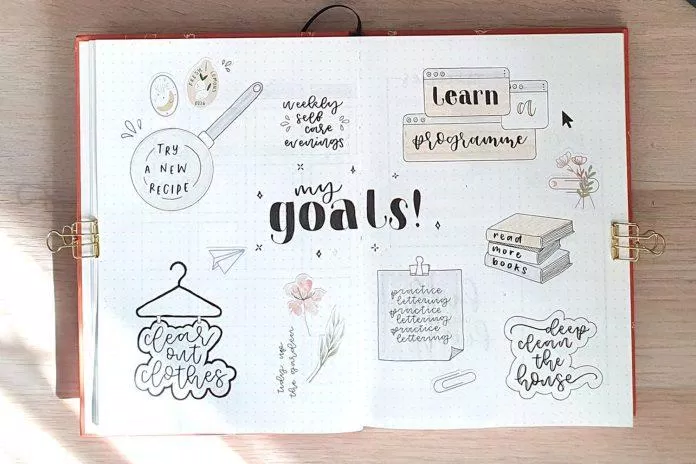 FRESH LEMONS
2024
weekly
self
care
evenings
Learn
a
programme
TRY
A NEW
RECIPE
my
goals!
read
more
books
clear
out
clothes
tidy up
the garden
practice
lettering
practice
lettering
practice
lettering
deep
clean
the
house